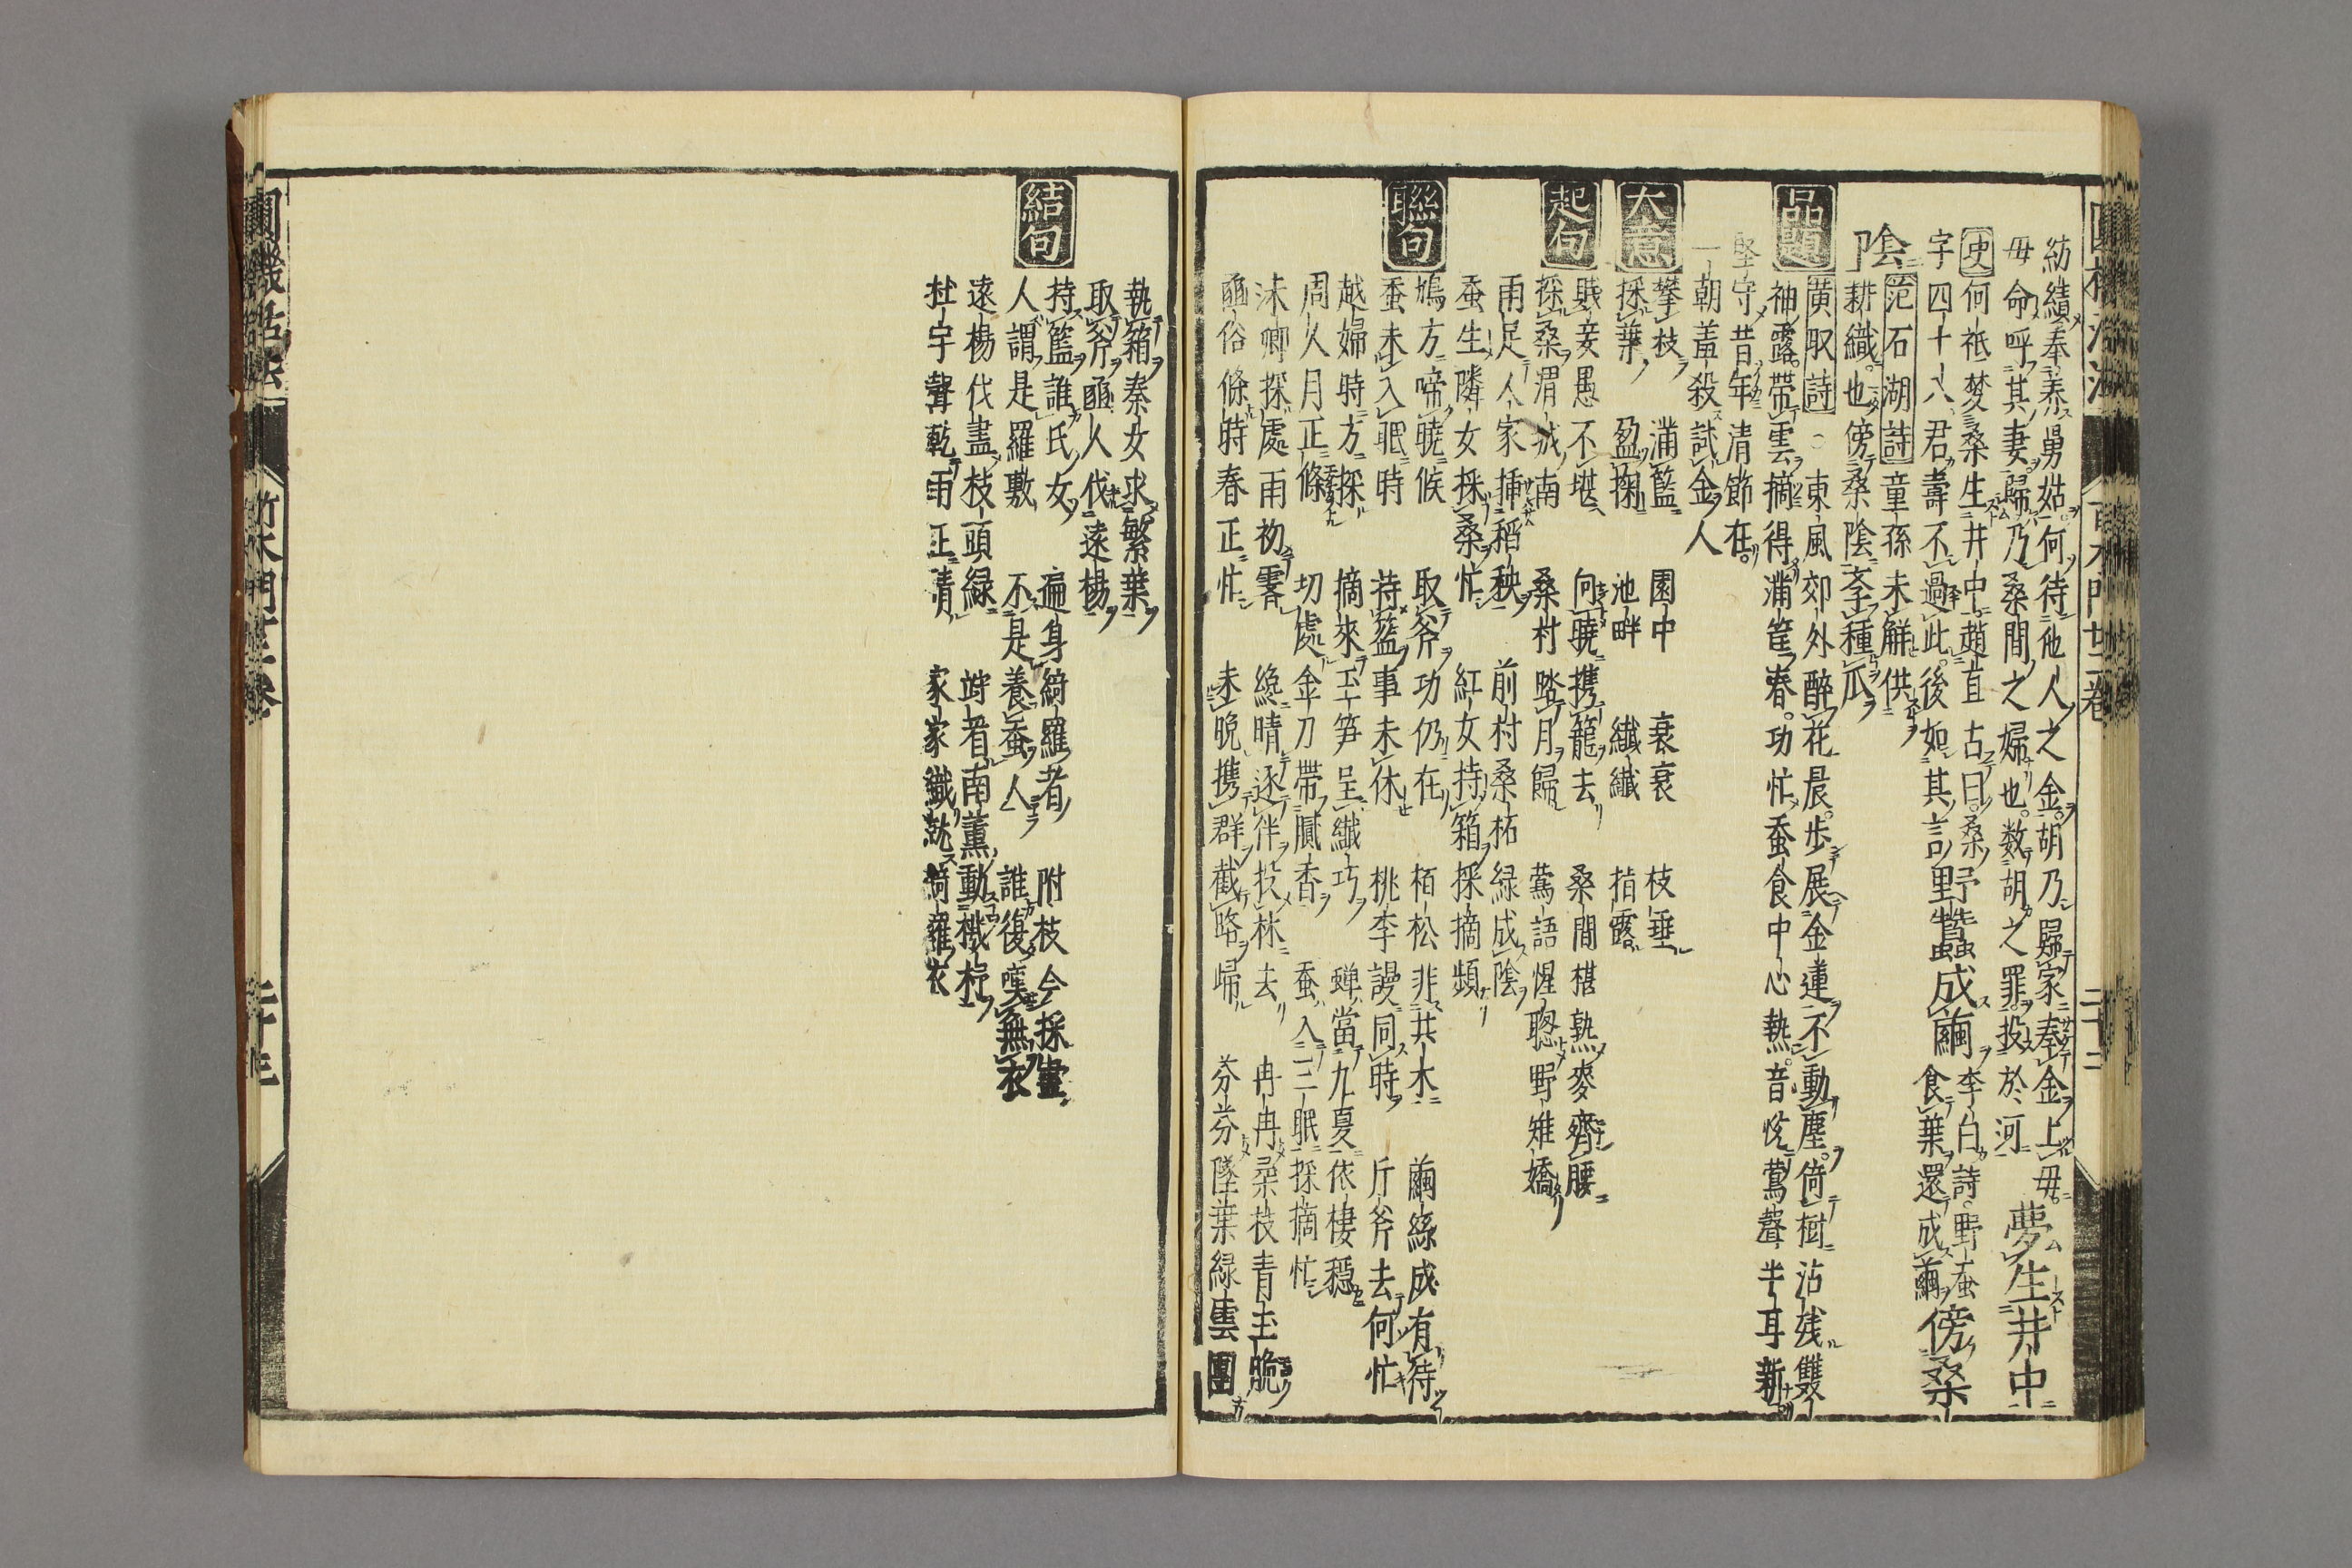 紡績奉養舅姑何待他人之金胡乃歸家奉金上毋夢生井中
毋命呼其妻歸乃桑間之婦也数胡之罪投於河
史何祗夢桑生井中趙直古曰桑李白詩野蚕
字四十八君壽不過此後如其言野蠶成繭食葉還成繭傍桑
陰范石湖詩童孫未解供
耕織也傍桑陰李種瓜
品題黄取詩東風郊外醉花晨歩展金蓮不動塵倚樹沾残雙
袖露帶雲摘得滿筐春功忙蚕食中心熱音恍鶯聲半耳新
堅守昔年清節在
一朝羞殺試金人
大意攀枝滿籃園中裊裊枝垂
採葉盈掬池畔纖纖指露
起句賤妾愚不堪向曉携籠去桑間椹熟麥齊腰
採桑渭城南桑村踏月歸鶯語惺聰野雉嬌
雨足人家挿稻秧前村桑柘緑成陰
蚕生隣女採桑忙紅女持箱採摘頻
聯句鳩方啼曉候取斧功仍在栢松非共木繭絲成有待
蚕未入眠時持籃事未休桃李謾同時斤斧去何忙
越婦時方採摘來玉笋呈纖巧蝉當九夏依棲穩
周人月正條切處金刀帶膩香蚕入三眠採摘忙
沬鄉採處雨初霽纔晴逐伴投林去冉冉桑枝青玉脆
豳俗條時春正忙未晩携群截路歸芬芬墜葉緑雲團
結句執箱秦女求繁葉
取斧豳人伐遠楊
持籃誰氏女遍身綺羅者附枝今採盡
人謂是羅敷不是養蚕人誰復嘆無衣
遠楊伐盡枝頭緑竚看南薫動機杼
杜宇聲乾雨正晴家家織就綺羅衣